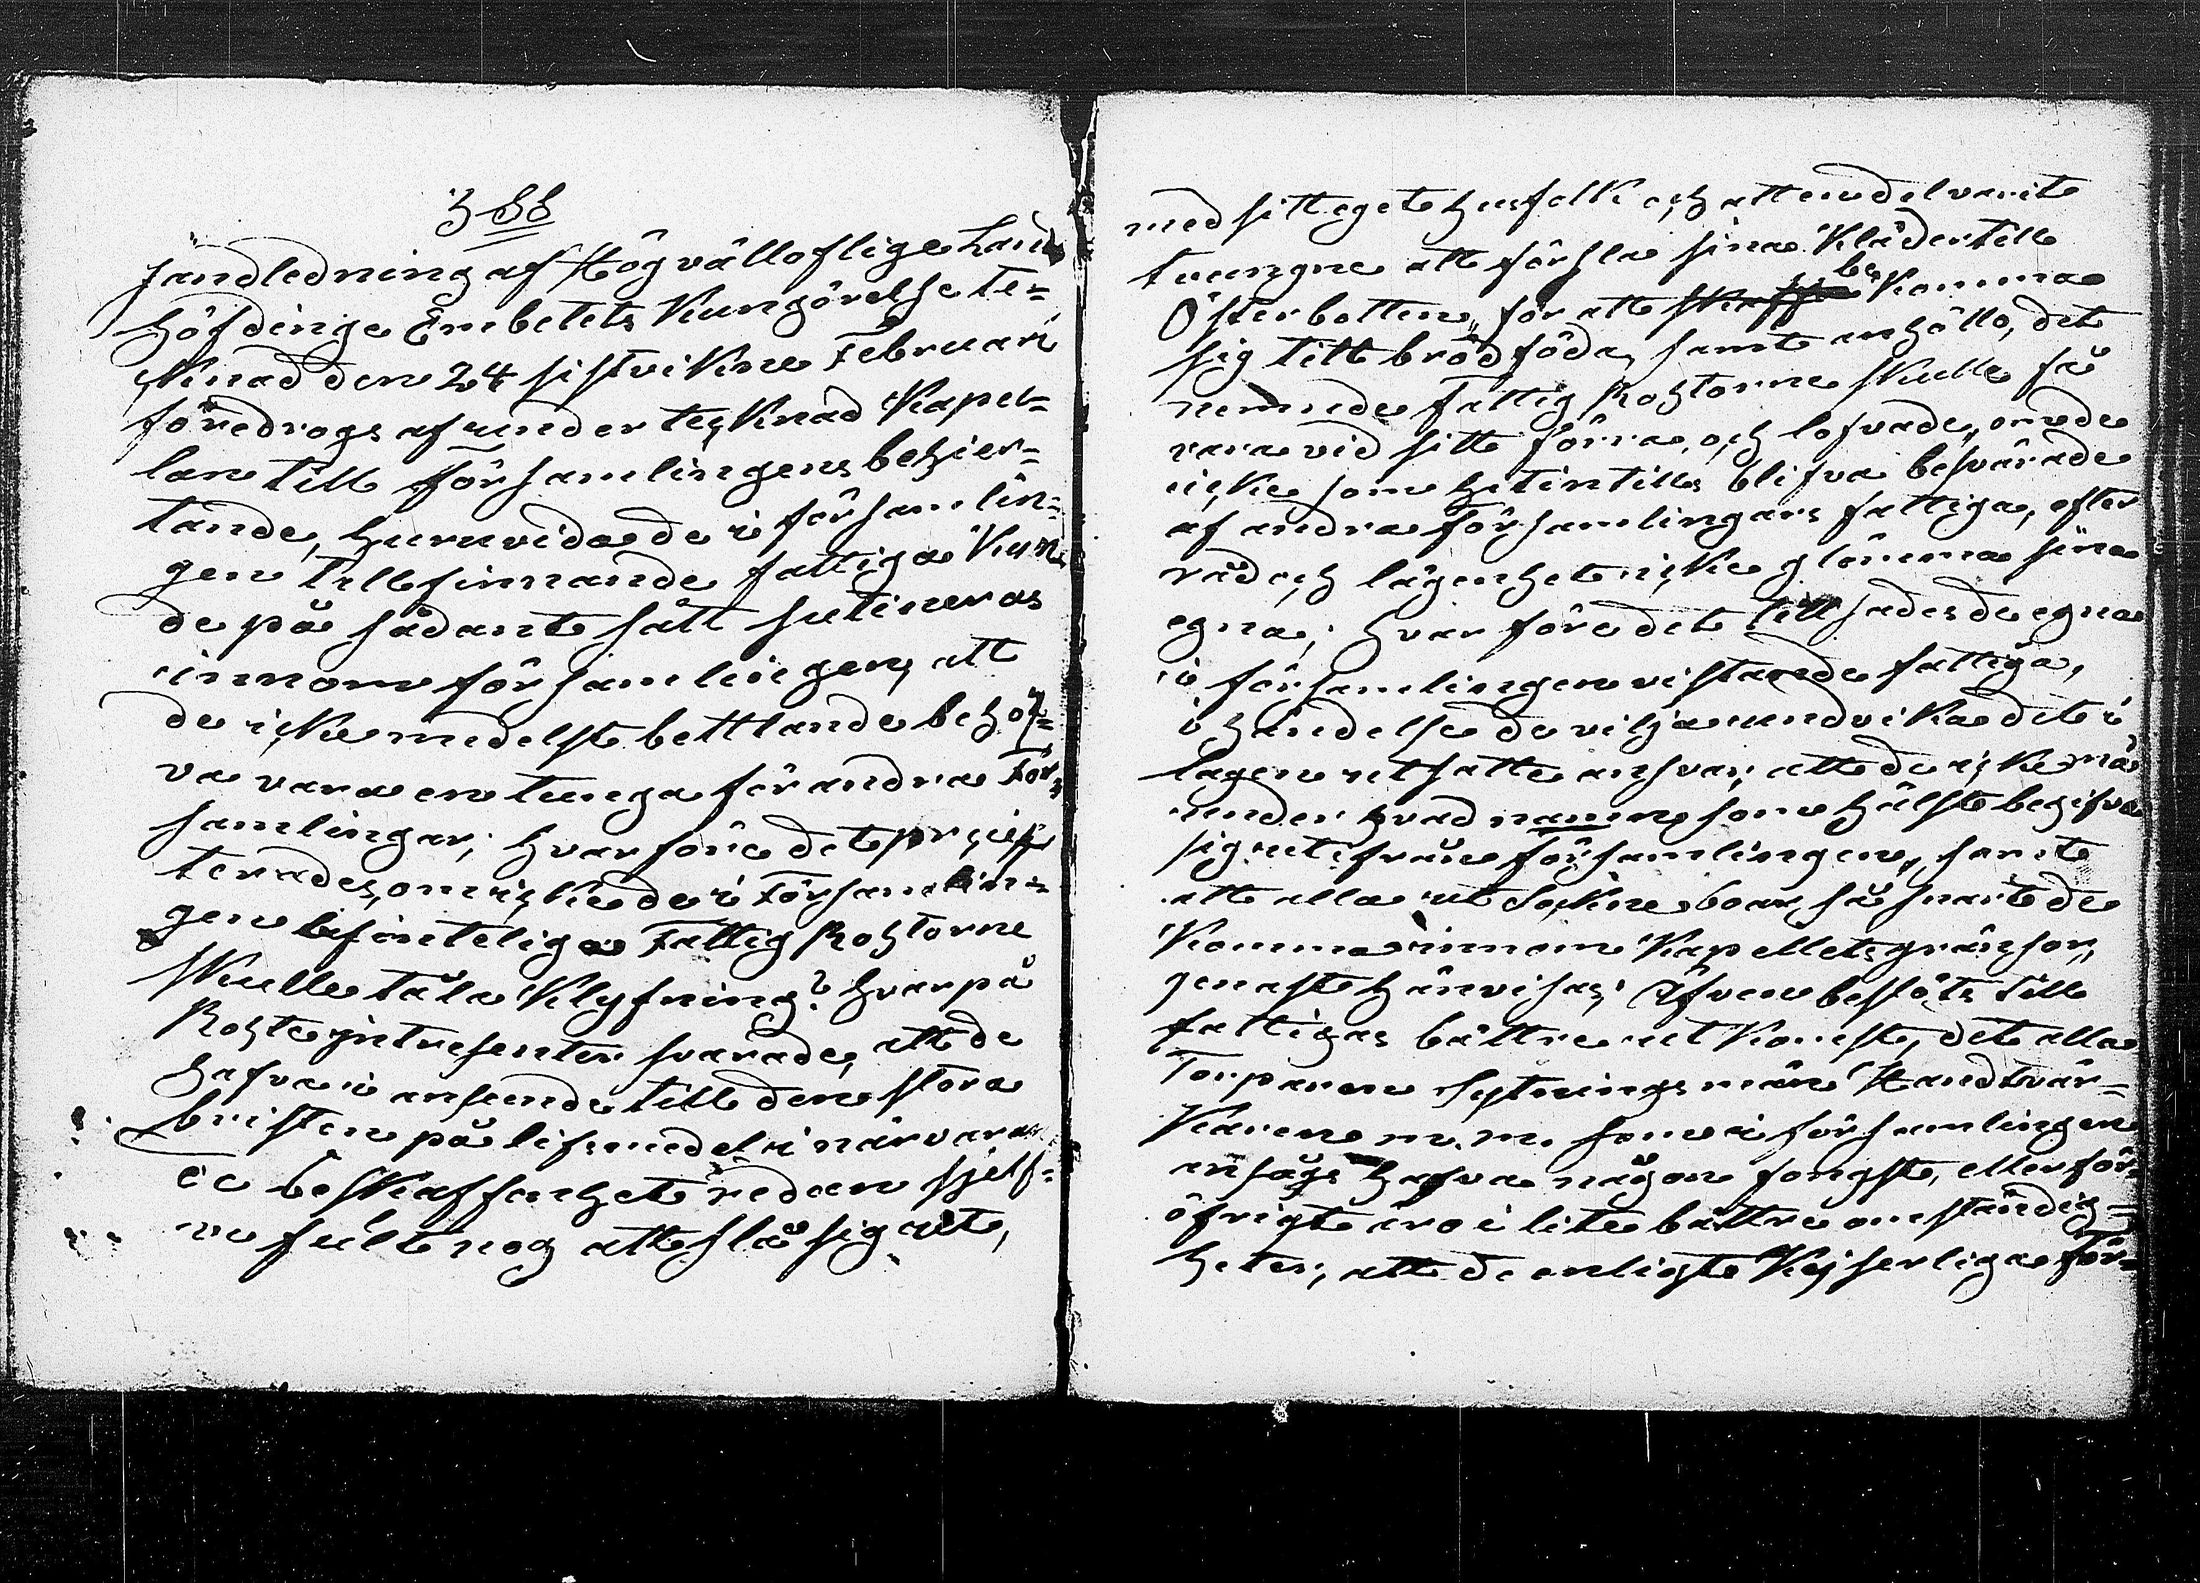 3 §§
Handledning af Högvälloflige Lands
höfdinge Embetets Kungörelse te-
cknad den 24 sistvikne Februari
föredrogs af undertecknad Kapel-
lan till församlingens behier-
tande, huruvida de i församlin-
gen tillfinnande fattiga kun
de på sådant sätt sutineras
innom församlingen, att
de icke medelst bettlande behöf-
va vara en tunga för andra För-
samlingar; hvarföre det
terades, om icke de i Församlin-
gen befinteliga Fattig Rohtorne
skulle tåla klyfning? hvarpå
Rohteintresenter svarade, att de
hafva i anseende till den stora
bristen på lifsmedel i närvaran
de beskaffenhet redan sjelf-
va fult nog att slå sig ut,
med sitt eget husfolk och att endel varit
tvungne att försla sina Kläder till
Österbotten, för att skaffa be Komma
sig till brödföda, samt anhöllo, det
nemnde Fattig Rohtorne skulle få
vara vid sitt förra, och lofvade, om de
icke som hitintills blifva besvärade
af andra församlingars fattiga, efter
råd och lägenhet icke glömma sina
egna; hvarföre det tillsades de egna
i församlingen vistande fattiga,
i händelse de vilja undvika det i
lagen utsatte ansvar, att de icke må
under hvad namn som hälst begifva
sig ut ifrån församlingen, samt
att alla ut Sockne boar, så snart de
Komma innom Kapellets gränsor,
genast hänvisas; Äfven beslöts till
fattigas bättre utkomst, det alla
Torparen Sytningsmän Handtvär-
Karene m. m. som i församlingen
ansågs hafva någon fongst, eller för-
öfrigt äro i lite bättre omständig-
heter, att de enligt Kejserliga För-